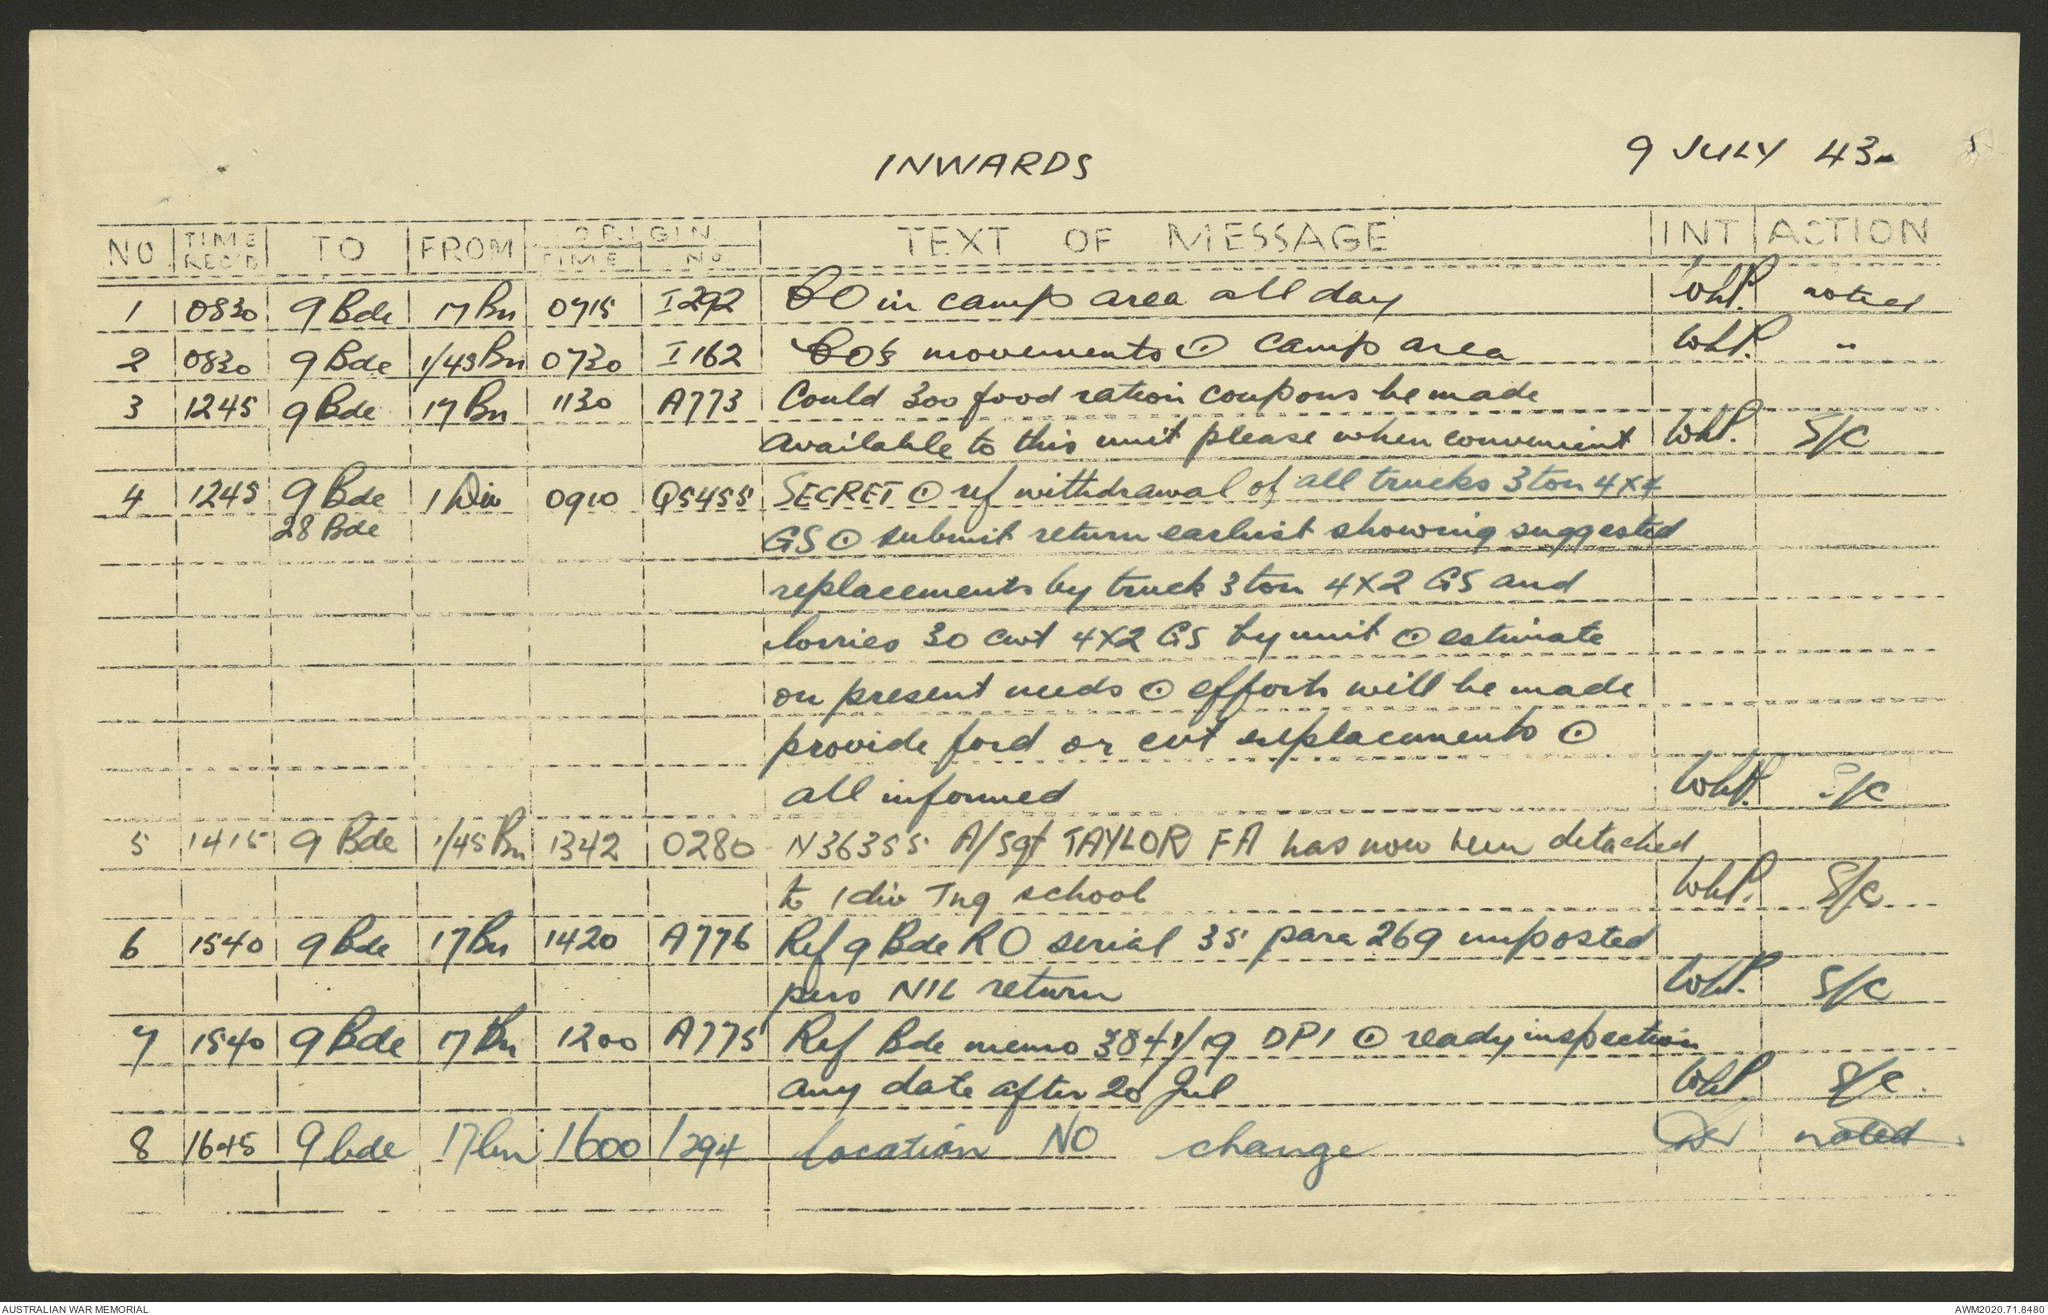 INWARDS 9 JULY 43
NO TIME REC'D TO FROM ORIGIN TIME No TEXT OF MESSAGE INT ACTION
1 0830 9 Bde 17 Bn 0715 I292 CO in camp area all day WhP. noted
2 0830 9 Bde 1/45 Bn 0730 I162 CO's movements ⊙ camp area WhP. "
3 1245 9 Bde 17 Bn 1130 A773 Could 300 food ration coupons be made
available to this unit please when convenient WhP. S/C
4 1245 9 Bde 1 Div 0910 Q5455 SECRET ⊙ ref withdrawal of all trucks 3 ton 4X4
28 Bde GS ⊙ submit return earliest showing suggested
replacements by truck 3 ton 4X2 GS and
lorries 30 cwt 4X2 GS by unit ⊙ estimate
on present needs ⊙ efforts will be made
provide ford or replacements ⊙
all informed WhP. S/C
5 1415 9 Bde 1/45 Bn 1342 O280 N36355 A/Sgt TAYLOR FA has now been detached
to 1 div Tng school WhP. S/C
6 1540 9 Bde 17 Bn 1420 A776 Ref 9 Bde RO serial 35 para 269 unposted
pers NIL return WhP. S/C
7 1540 9 Bde 17 Bn 1200 A775 Ref Bde memo DPI ⊙ ready inspection
any date after 20 Jul WhP. S/C.
8 1645 9 bde 17 bn 1600 I294 location NO change noted.
AUSTRALIAN WAR MEMORIAL AWM2020.71.8480